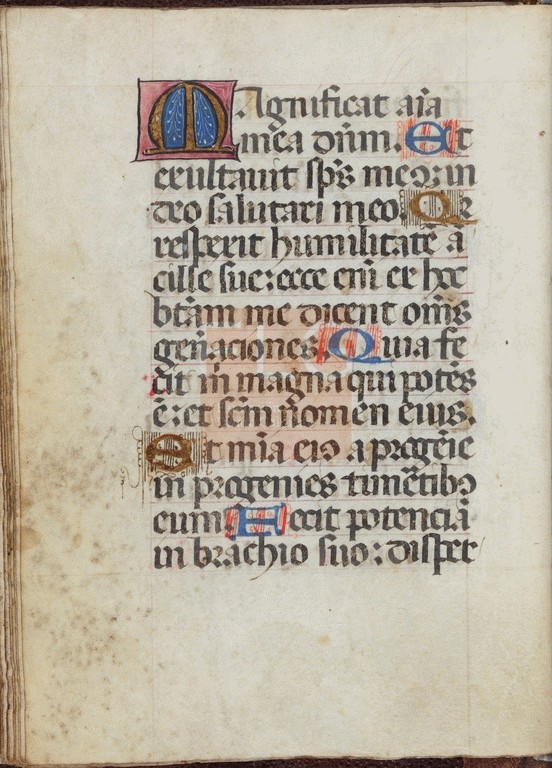 Magnificat aīa
mea dn̄m. Et
exultauit sp̄s meꝰ: in
deo salutari meo. Qr
respexit humilitatē ā
cille sue: ecce eni᷑ ex hoc
btām me dicent om̄s
gen̄aciones. Quia fe
cit m̄ magna qui potēs
ē: et sc̄m nomen eius.
Et mīa eiꝰ a progēie
in progenies timētibꝰ
eum. Fecit potenciā
in brachio suo: disper